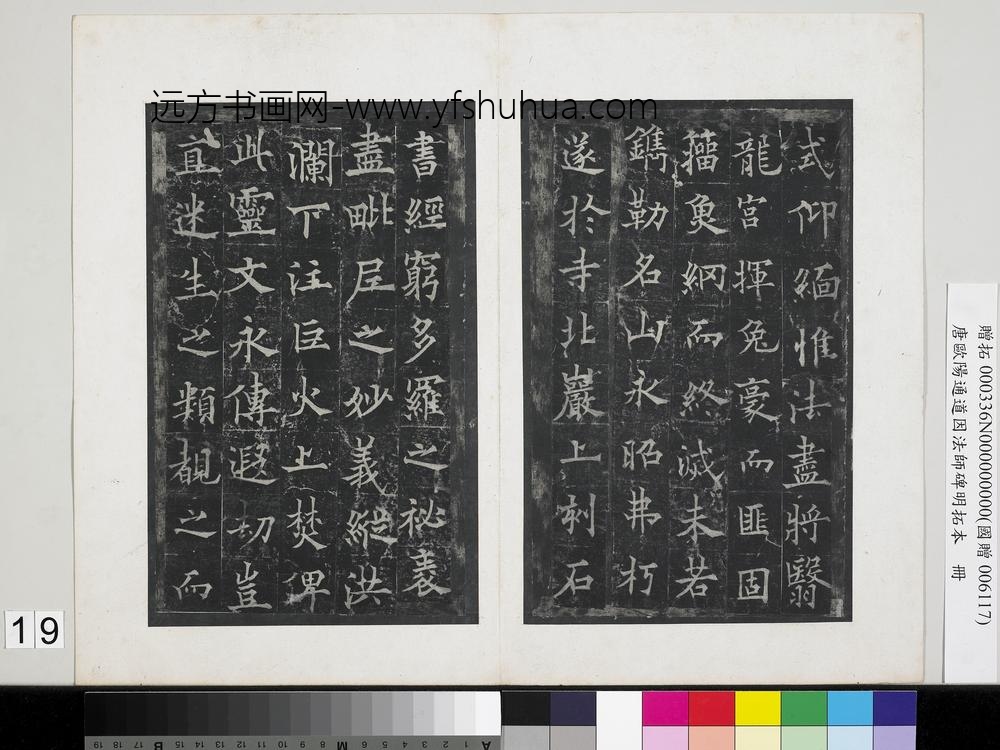 远方书画网-www.yfshuhua.com
式仰緬惟法盡將翳
龍宮揮兔豪而匪固
籀魚網而終滅未若
鐫勒名山永昭弗朽
遂於寺北巖上刻石
書經窮多羅之祕袠
盡毗尼之妙義縱洪
瀾下注巨火上焚俾
此靈文永傳遐劫豈
直迷生之類覩之而
贈拓 000336N000000000(國贈 006117)
唐歐陽通道因法師碑明拓本 冊
19
19 18 17 16 15 B 12 11 10 9 8 M 6 5 4 3 2 1 A